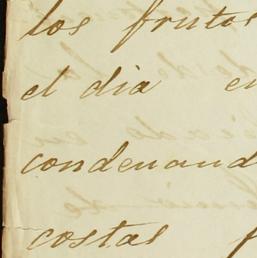 los frutos
el dia e
condenand
costas f